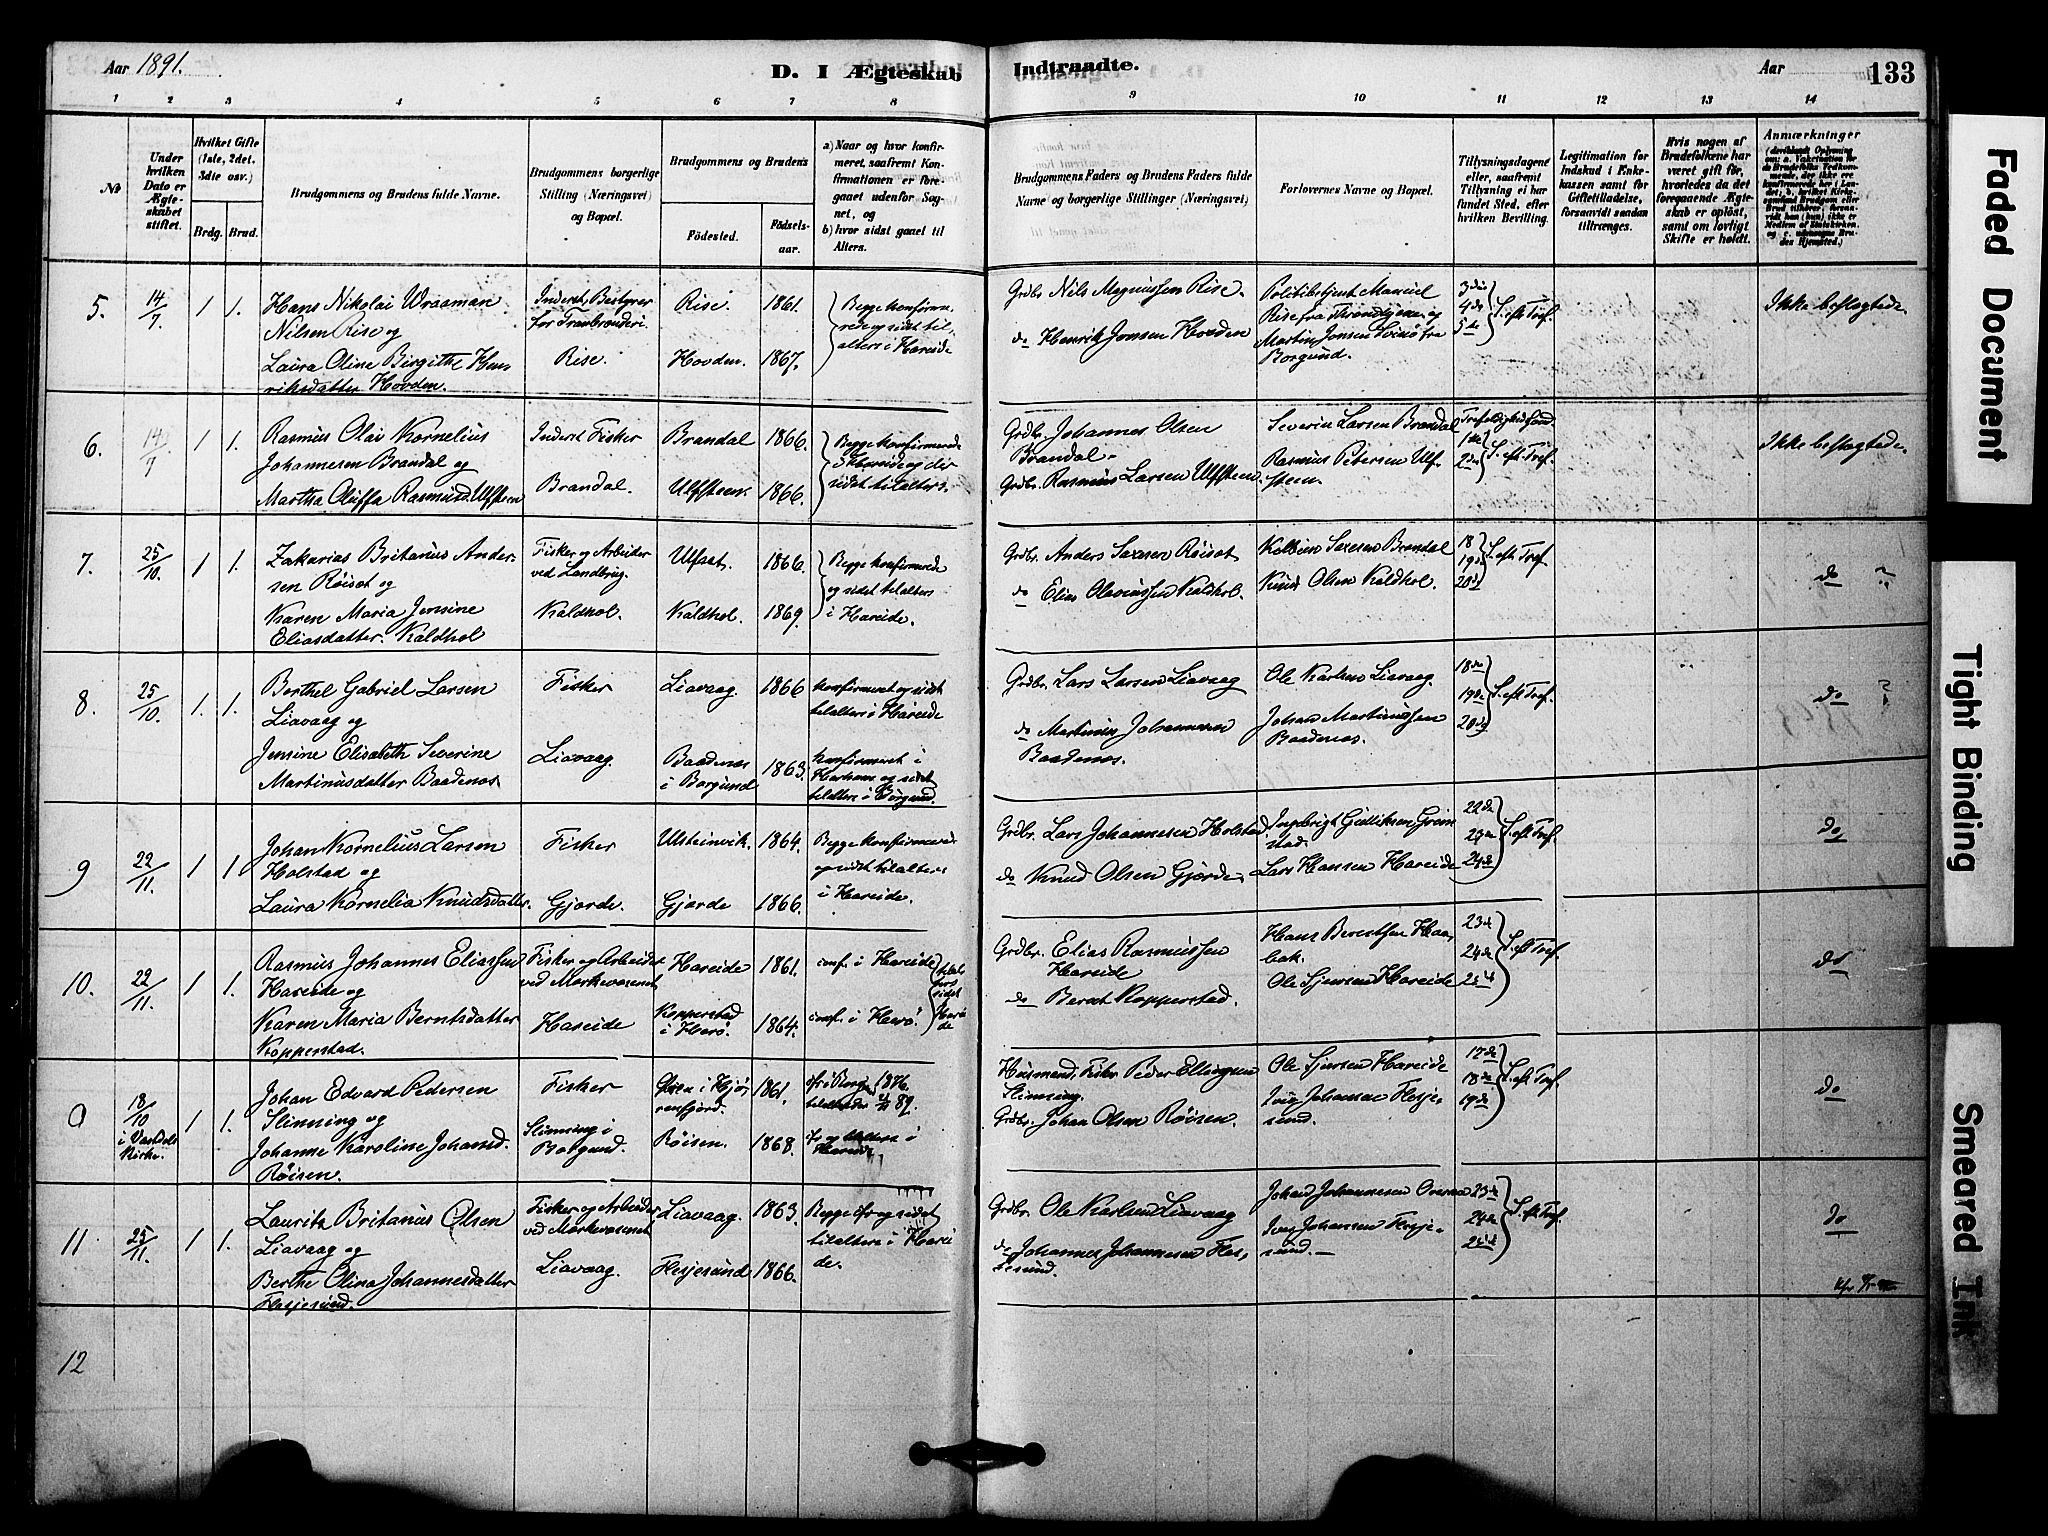 Aar 1891.
D. I Ægteskab Indtraadte.
Aar
133
1 2 3 4 5 6 7 8 9 10 11 12 13 14
№
Under hvilken Dato er Ægteskabet stiftet.
Hvilket Gifte (1ste, 2det, 3die osv.)
Brdg. Brud.
Brudgommens og Brudens fulde Navne.
Brudgommens borgerlige Stilling (Næringsvei) og Bopæl.
Brudgommens og Brudens
Fødested.
Fødselsaar.
a) Naar og hvor konfirmeret, saafremt Konfirmationen er foregaaet udenfor Sognet, og
b) hvor sidst gaaet til Alters.
Brudgommens Faders og Brudens Faders fulde Navne og borgerlige Stillinger (Næringsvei)
Forlovernes Navne og Bopæl.
Tillysningsdagene eller, saafremt Tillysning ei har fundet Sted, efter hvilken Bevilling.
Legitimation for Indskud i Enkekassen samt for Giftetilladelse, forsaavidt saadan tiltrænges.
Hvis nogen af Brudefolkene har været gift før, hvorledes da det foregaaende Ægteskab er opløst, samt om lovligt Skifte er holdt.
Anmærkninger
5. 14/7 1 1.
Hans Nikolai Wraaman
Nilsen Rise og
Laura Oline Birgithe Hen
riksdatter Hovden.
Inderst, Bestyrer
for Tranbrænderi.
Rise.
Rise. 1861.
Hovden. 1867.
Begge konfirme
rede og sidst til
alters i Hareide
Grdbr. Nils Magnussen Rise.
do Henrik Jonsen Hovden
Politibetjent
Rise fra Trondhjem og
Martin Jonsen fra
Borgund.
3die
4de
5te
S. eft. Tref.
Ikke beslægtede
6. 14/7 1 1.
Rasmus Olai Kornelius
Johannesen Brandal og
Martha Oluffa Rasmusd. Ulfsteen
Inderst Fisker
Brandal.
Brandal 1866.
Ulfsteen. 1866.
Begge konfirmerede
i Hareide og der
sidst til alters.
Grdbr. Johannes Olsen
Brandal.
Grdbr. Rasmus Larsen Ulfsteen.
Severin Larsen Brandal
Rasmus Petersen Ulf-
steen.
Trefoldighedssønd.
1ste
2den
S. eft. Tref.
Ikke beslægtede
7. 25/10. 1 1.
Zakarias Britanius Ander-
sen Röiset og
Karen Maria Jensine
Eliasdatter Kaldhol
Fisker og Arbeider
ved Landbrug.
Kaldhol.
Ulfset. 1866.
Kaldhol. 1869.
Begge konfirmerede
og sidst til alters
i Hareide.
Grdbr. Anders Saxesen Röiset
do Elias Olaussen Kaldhol.
Kolbein Saxesen Brandal
Knud Olsen Kaldhol.
18
19de
20de
S. eft. Tref.
do
8. 25/10. 1. 1.
Berthel Gabriel Larsen
Liavaag og
Jensine Elisabeth Severine
Martinusdatter Baadenes.
Fisker
Liavaag.
Liavaag. 1866
Baadenes
i Borgund 1863.
konfirmeret og sidst
til alters i Hareide
konfirmeret i
Harham og sidst
til alters i Borgund.
Grdbr. Lars Larsen Liavaag
do Martinus Johannesen
Baadenes.
Ole Karlsen Liavaag.
Johan Martinussen
Baadenes.
18de
19de
20de
S. eft. Tref.
do
9 22/11. 1 1
Johan Kornelius Larsen
Holstad og
Laura Kornelia Knudsdatter.
Fisker
Gjerde.
Ulsteinvik. 1864.
Gjerde 1866.
Begge konfirmerede
og sidst til alters
i Hareide.
Grdbr. Lars Johannesen Holstad
do Knud Olsen Gjerde.
Ingebrigt Gulliksen Grim
stad.
Lars Hansen Hareide
22de
23de
24de
S. eft. Tref.
do
10. 22/11. 1 1.
Rasmus Johannes Eliassen
Hareide og
Karen Maria Berntsdatter
Kopperstad.
Fisker og Arbeider
ved Markevæsenet
Hareide
Hareide 1861.
Kopperstad
i Herö. 1864.
conf. i Hareide
conf. i Herö.
til al
ters
sidst
Harei
de
Grdbr. Elias Rasmussen
Hareide
do Bernt Kopperstad.
Hans Berntsen Haa
bak.
Ole Sjursen Hareide
23de
24de
25de
S. eft. Tref.
do
9 18/10 i Vartdals Kirke. 1 1.
Johan Edvard Pedersen
Slinning og
Johanne Karoline Johansd.
Röisen.
Fisker
Slinning i
Borgund.
i Hjör
renfjord. 1861.
Röisen. 1868.
1876.
89.
til alters i
Hareide
Husmand, Fisker Peder Ellingsen
Slinning.
Grdbr. Johan Olsen Röisen.
Ole Sjursen Hareide
Iver Johansen Flesje-
sund.
17de
18de
19de
S. eft. Tref.
do
11 25/11. 1 1.
Laurits Britanius Olsen
Liavaag og
Berthe Olina Johannesdatter
Flesjesund.
Fisker og Arbeider
ved Markevæsenet
Liavaag.
Liavaag. 1863.
Flesjesund 1866.
Begge cfr og sidst
til alters i Harei
de.
Grdbr. Ole Karlsen Liavaag
do Johannes Johannesen Fles-
jesund.
Johan Johannesen Overaa
Iver Johansen Flesje-
sund.
23de
24de
25de
S. eft. Tref.
do
12
Faded Document
Tight Binding
Smeared Ink